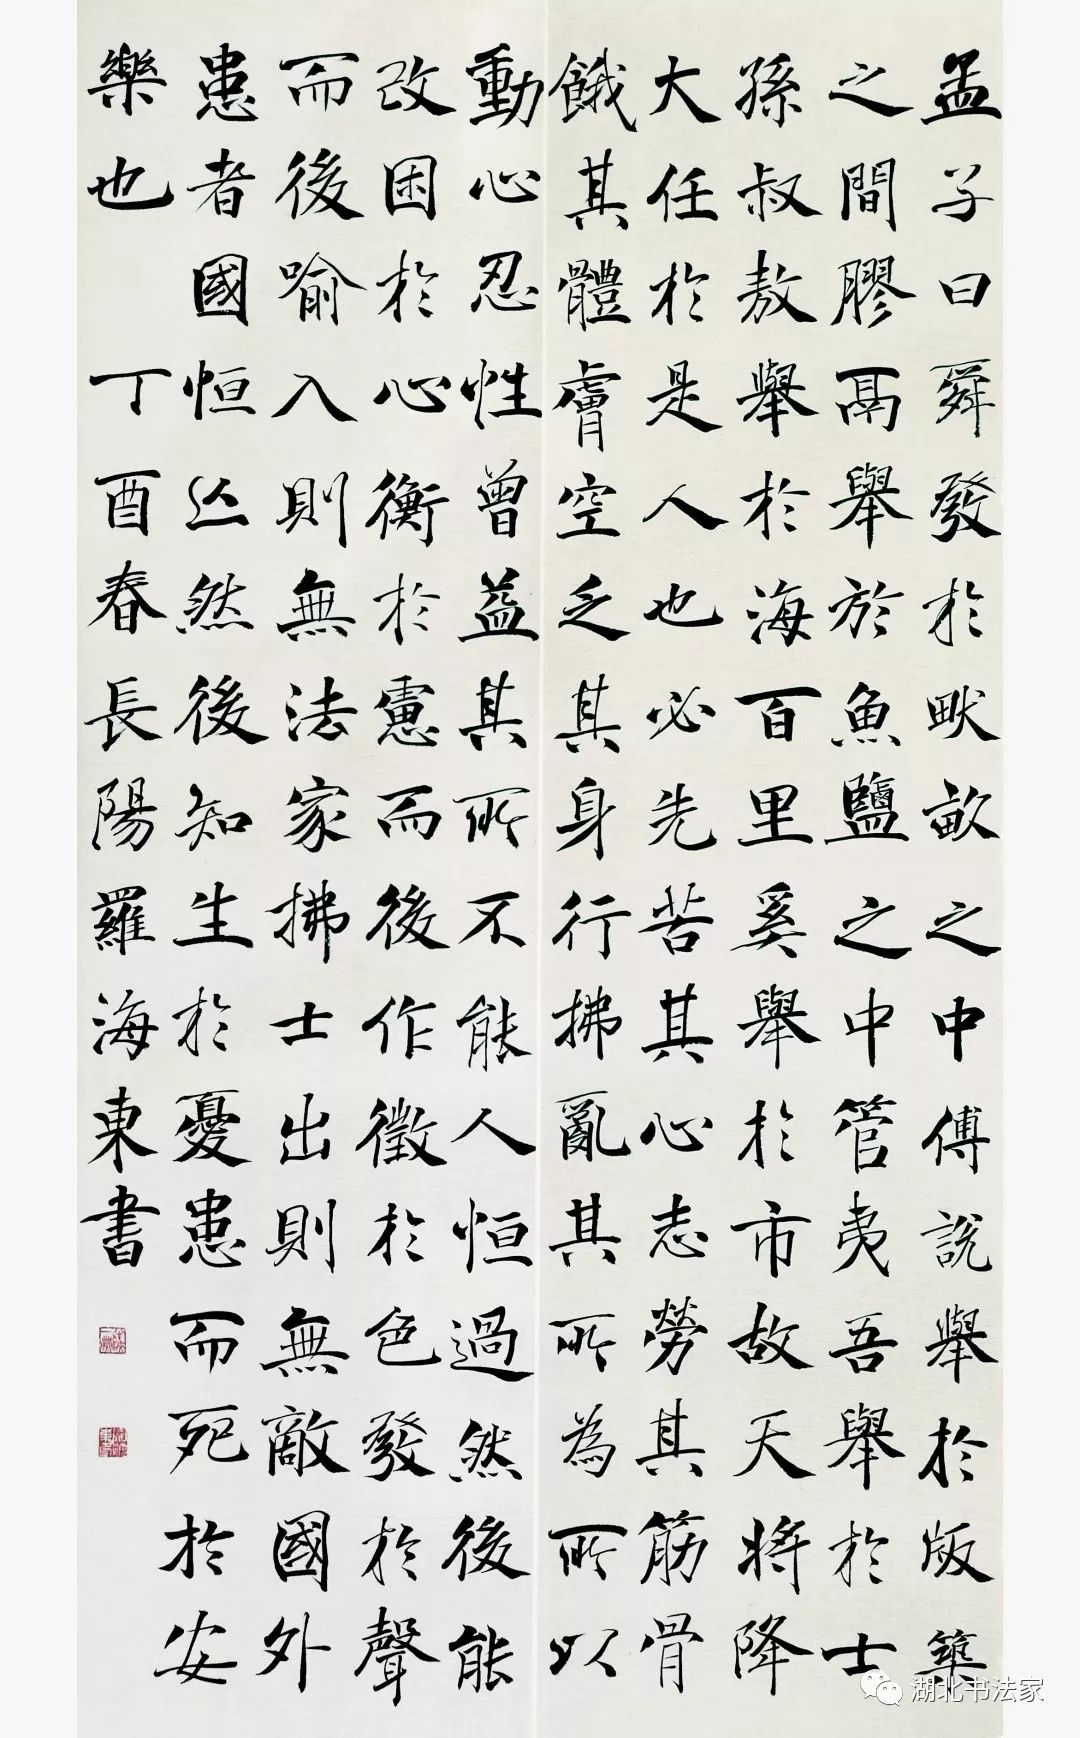 孟子曰舜發於畎畝之中傅說舉於版築
之間膠鬲舉於魚鹽之中管夷吾舉於士
孫叔敖舉於海百里奚舉於市故天將降
大任於是人也必先苦其心志勞其筋骨
餓其體膚空乏其身行拂亂其所為所以
動心忍性曾益其所不能人恒過然後能
改困於心衡於慮而後作徵於色發於聲
而後喻入則無法家拂士出則無敵國外
患者國恒亡然後知生於憂患而死於安
樂也 丁酉春長陽羅海東書
湖北书法家